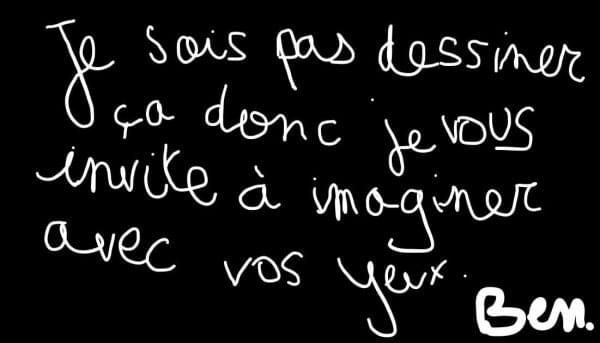 Je sais pas dessiner
ça donc je vous
invite à imaginer
avec vos yeux.
Ben.